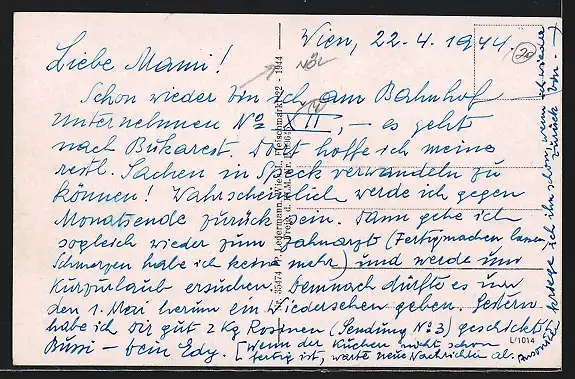 Wien, 22.4.1944.
20
Liebe Mami!
NÖL
Schon wieder bin ich am Bahnhof
Unternehmen No VII, — es geht
nach Bukarest. Dort hoffe ich meine
restl. Sachen in Speck verwandeln zu
können! Wahrscheinlich werde ich gegen
Monatsende zurück sein. Dann gehe ich
sogleich wieder zum Zahnarzt (Fertigmachen lassen,
Schmerzen habe ich keine mehr) und werde um
Kurzurlaub ersuchen. Demnach dürfte es um
den 1. Mai herum ein Wiedersehen geben. Gestern
habe ich Dir gut 2 kg Rosinen (Sendung No 3) geschickt.
Bussi — Dein Edy. [Wenn der Kuchen nicht schon
fertig ist, warte neue Nachrichten ab.
ich ihn schon, wenn ich wieder
zurück bin.
Nr. 35474 Fr. Ledermann, Wien I., Fleischmarkt 22 - 1944
L/1014